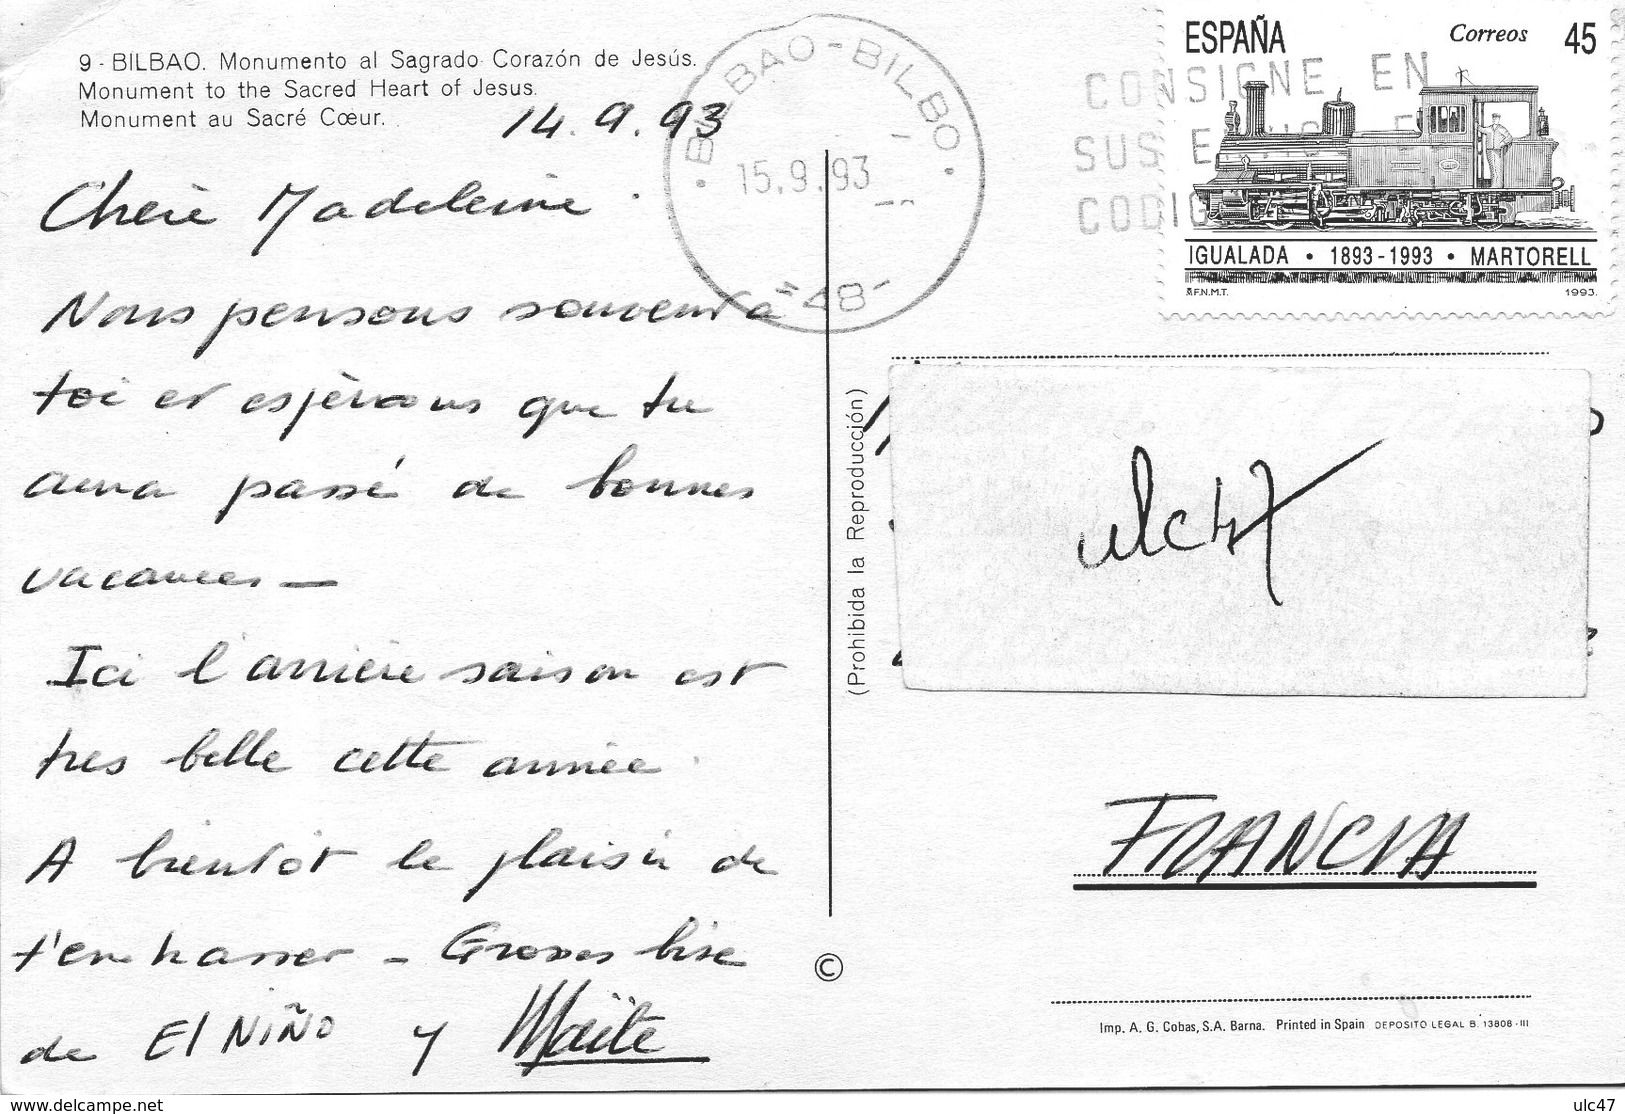 9 - BILBAO. Monumento al Sagrado Corazón de Jesús.
Monument to the Sacred Heart of Jesus.
Monument au Sacré Cœur.
14.9.93
Chère Madeleine.
Nous pensons souvent à
toi et espèrons que tu
aura passé de bonnes
vacances —
Ici l'arrière saison est
tres belle cette année.
A bientôt le plaisir de
t'embrasser - Grosses bise
de El NiÑO y Maïte
BILBAO-BILBO
15.9.93
-48-
CONSIGNE EN
SUS
CODIG
ESPAÑA Correos 45
IGUALADA • 1893-1993 • MARTORELL
F.N.M.T. 1993.
(Prohibida la Reproducción)
ulc47
FRANCIA
©
Imp. A. G. Cobas, S.A. Barna. Printed in Spain DEPOSITO LEGAL B. 13808-III
www.delcampe.net
ulc47